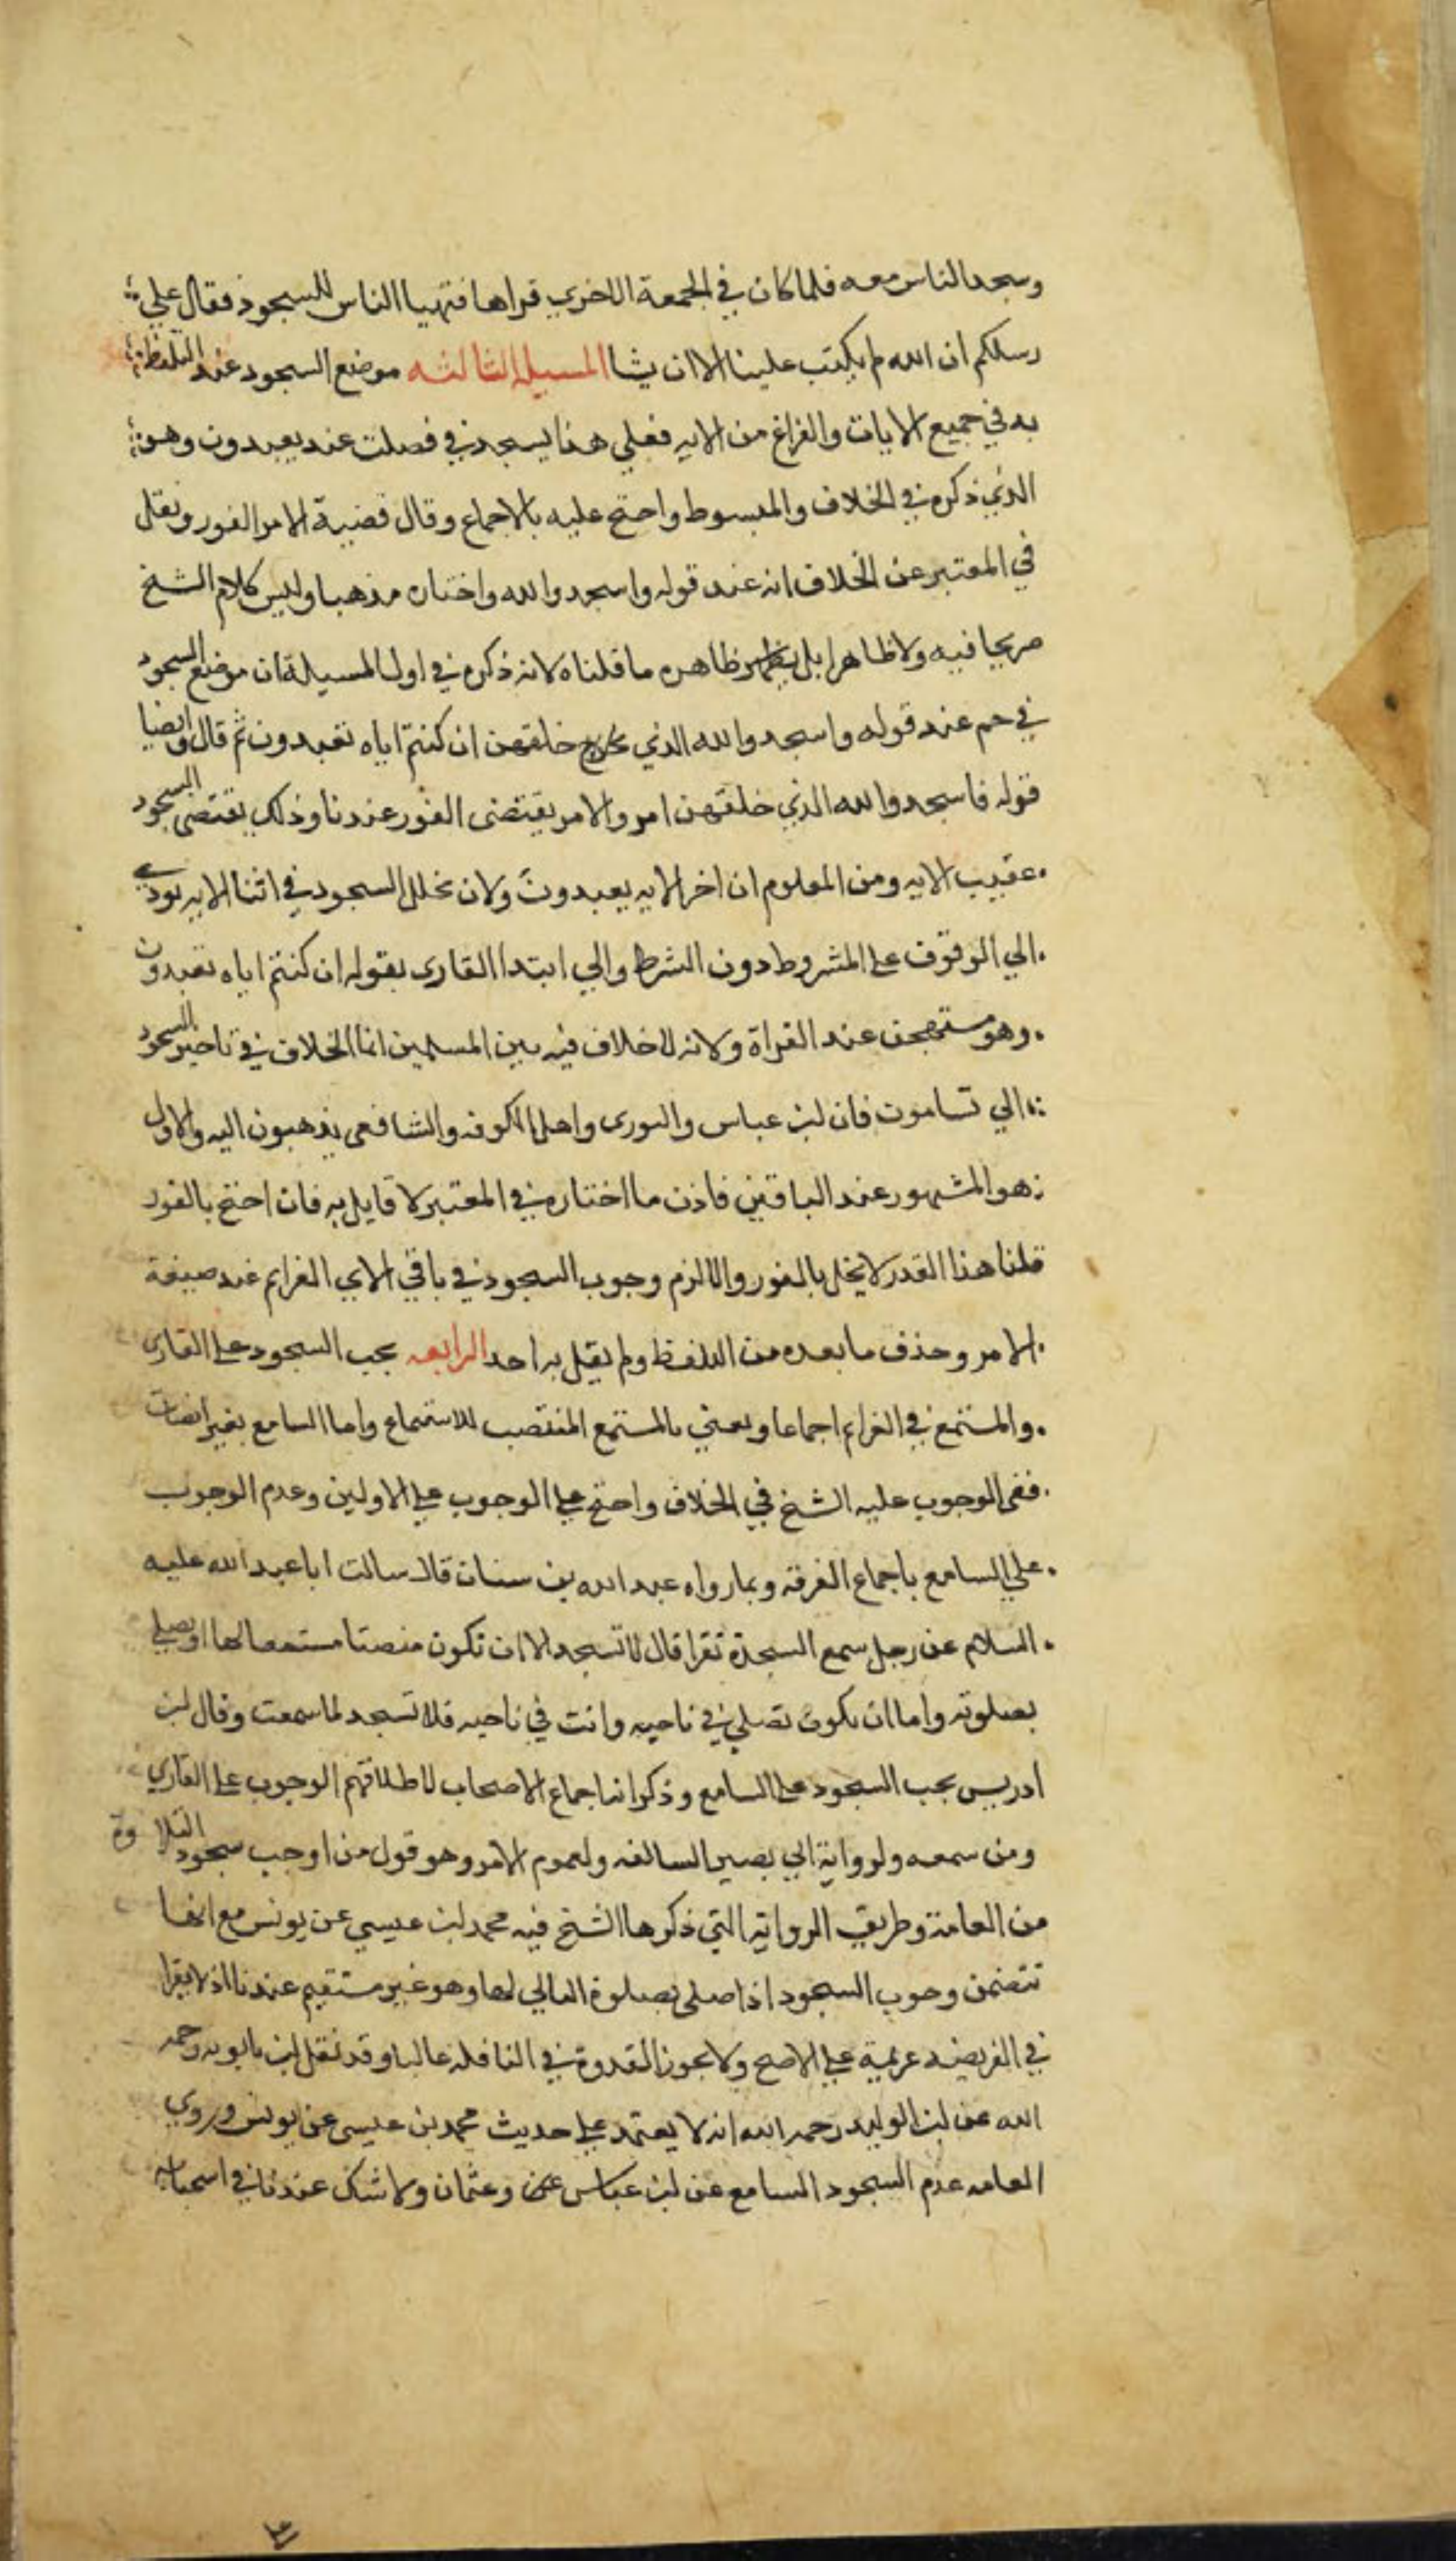 وسجد الناس معه فلما كان في الجمعة الاخرى قراها فتهيا الناس للسجود فقال علي
رسلكم ان الله لم يكتب علينا الا ان يشا المسيلة الثالثه موضع السجود عند التلفظ
به في جميع الايات والفراغ من الايه فعلي هذا يسجد في فصلت عند يعبدون وهو
الذي ذكره في الخلاف والمبسوط واحتج عليه بالاجماع وقال قضية الامر الفور ونقل
في المعتبر عن الخلاف انه عند قوله واسجدوا لله واختاره مذهبا وليس كلام الشيخ
صريحا فيه ولا ظاهرا بل ظاهره ما قلناه لانه ذكره في اول المسيلة ان موضع السجود
في حم عند قوله واسجدوا لله الذي خلقهن ان كنتم اياه تعبدون ثم قال وايضا
قوله فاسجدوا لله الذي خلقهن امر والامر يقتضى الفور عندنا وذلك يقتضى السجود
عقيب الايه ومن المعلوم ان اخر الايه يعبدون ولان تخلل السجود في اثنا الايه يودي
الي الوقوف على المشروط دون الشرط والي ابتدا القارى بقوله ان كنتم اياه تعبدون
وهو مستهجن عند القراة ولانه لا خلاف فيه بين المسلمين انما الخلاف في تاخير السجود
الي تساموت فان ابن عباس والثورى واهل الكوفه والشافعى يذهبون اليه والاول
هو المشهور عند الباقين فاذن ما اختاره في المعتبر لا قايل به فان احتج بالفور
قلنا هذا القدر لا يخل بالفور والا لزم وجوب السجود في باقي الاي العزايم عند صيغة
الامر وحذف ما بعده من اللفظ ولم يقل به احد الرابعه يجب السجود على القارى
والمستمع في العزايم اجماعا ويعني بالمستمع المنتصب للاستماع واما السامع بغير انصات
ففى الوجوب عليه الشيخ في الخلاف واحتج على الوجوب على الاولين وعدم الوجوب
على السامع باجماع الفرقه وبما رواه عبد الله بن سنان قال سالت ابا عبد الله عليه
السلام عن رجل سمع السجدة تقرا قال لا تسجد الا ان تكون منصتا مستمعا لها او يصلي
بصلوته واما ان يكون تصلي في ناحيه وانت في ناحيه فلا تسجد لما سمعت وقال ابن
ادريس يجب السجود على السامع وذكر انه اجماع الاصحاب لاطلاقهم الوجوب على القاري
ومن سمعه ولرواية ابي بصير السالفه ولعموم الامر وهو قول من اوجب سجود التلاوة
من العامة وطريق الرواية التي ذكرها الشيخ فيه محمد ابن عيسي عن يونس مع انها
تتضمن وجوب السجود اذا صلى بصلوة التالي لها وهو غير مستقيم عندنا اذ لا يقرا
في الفريضه عزيمة على الاصح ولا يجوز القدوة في النافله غالبا وقد نقل ابن بابويه رحمه
الله عن ابن الوليد رحمه الله انه لا يعتمد على حديث محمد بن عيسى عن يونس وروي
العامه عدم السجود السامع عن ابن عباس وعثمان ولا شك عندنا في استحبابه